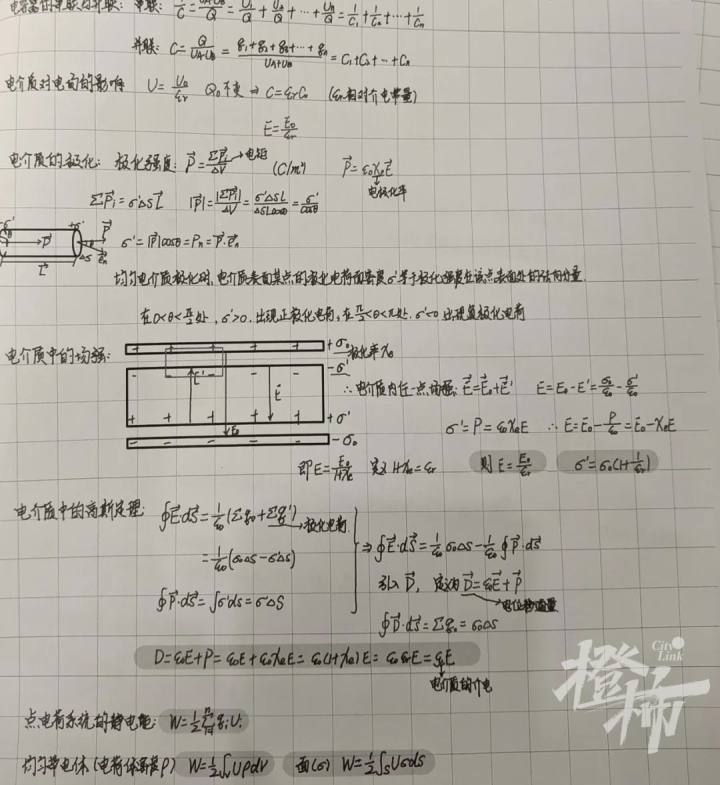 电容器的串联与并联: 串联: 1/C = (UA-UB)/Q = U1/Q + U2/Q + ··· + Un/Q = 1/C1 + 1/C2 + ··· + 1/Cn
并联: C = Q/(UA-UB) = (q1+q2+q3+···+qn)/(UA+UB) = C1+C2+···+Cn
电介质对电场的影响 U = U0/εr Q0不变 ⇒ C = εrC0 (εr相对介电常量)
E = E0/εr
电介质的极化: 极化强度: P⃗ = ΣP⃗i/ΔV → 电矩 (C/m²) P⃗ = ε0χeE⃗
电极化率
ΣP⃗i = σ'ΔSL⃗ |P⃗| = |ΣP⃗i|/ΔV = σ'ΔSL/(ΔSLcosθ) = σ'/cosθ
-σ' +σ' P⃗
P⃗ θ e⃗n σ' = |P⃗|cosθ = Pn = P⃗·e⃗n
L⃗ ΔS
均匀电介质极化时, 电介质表面某点的极化电荷面密度σ'等于极化强度在该点表面处的法向分量.
在0<θ<π/2处, σ'>0, 出现正极化电荷, 在π/2<θ<π处, σ'<0 出现负极化电荷
电介质中的场强: + + + + +σ0 极化率χe
- - - - - -σ'
E⃗' E⃗ ∴电介质内任一点场强: E⃗ = E⃗0+E⃗' E = E0-E' = σ0/ε0 - σ'/ε0
+ + + + + +σ' σ' = P = ε0χeE ∴ E = E0 - P/ε0 = E0 - χeE
- - - - E0 -σ0
即E = E0/(1+χe) 定义 1+χe = εr 则 E = E0/εr σ' = σ0(1+1/εr)
电介质中的高斯定理: ∮E⃗·dS⃗ = 1/ε0 (Σq0 + Σq') → 极化电荷
= 1/ε0 (σ0ΔS - σΔS) ⇒ ∮E⃗·dS⃗ = 1/ε0 σ0ΔS - 1/ε0 ∮P⃗·dS⃗
∮P⃗·dS⃗ = ∫σ'ds = σΔS 引入D⃗, 定义为D⃗ = ε0E⃗+P⃗
电位移通量
∮D⃗·dS⃗ = Σq0 = σ0ΔS
D = ε0E+P = ε0E + ε0χeE = ε0(1+χe)E = ε0εrE = εE
电介质的介电
点电荷系统的静电能: W = 1/2 Σ qiUi
均匀带电体(电荷体密度ρ) W = 1/2 ∫v Uρdv 面(σ) W = 1/2 ∫s Uσds
City Link
橙柿